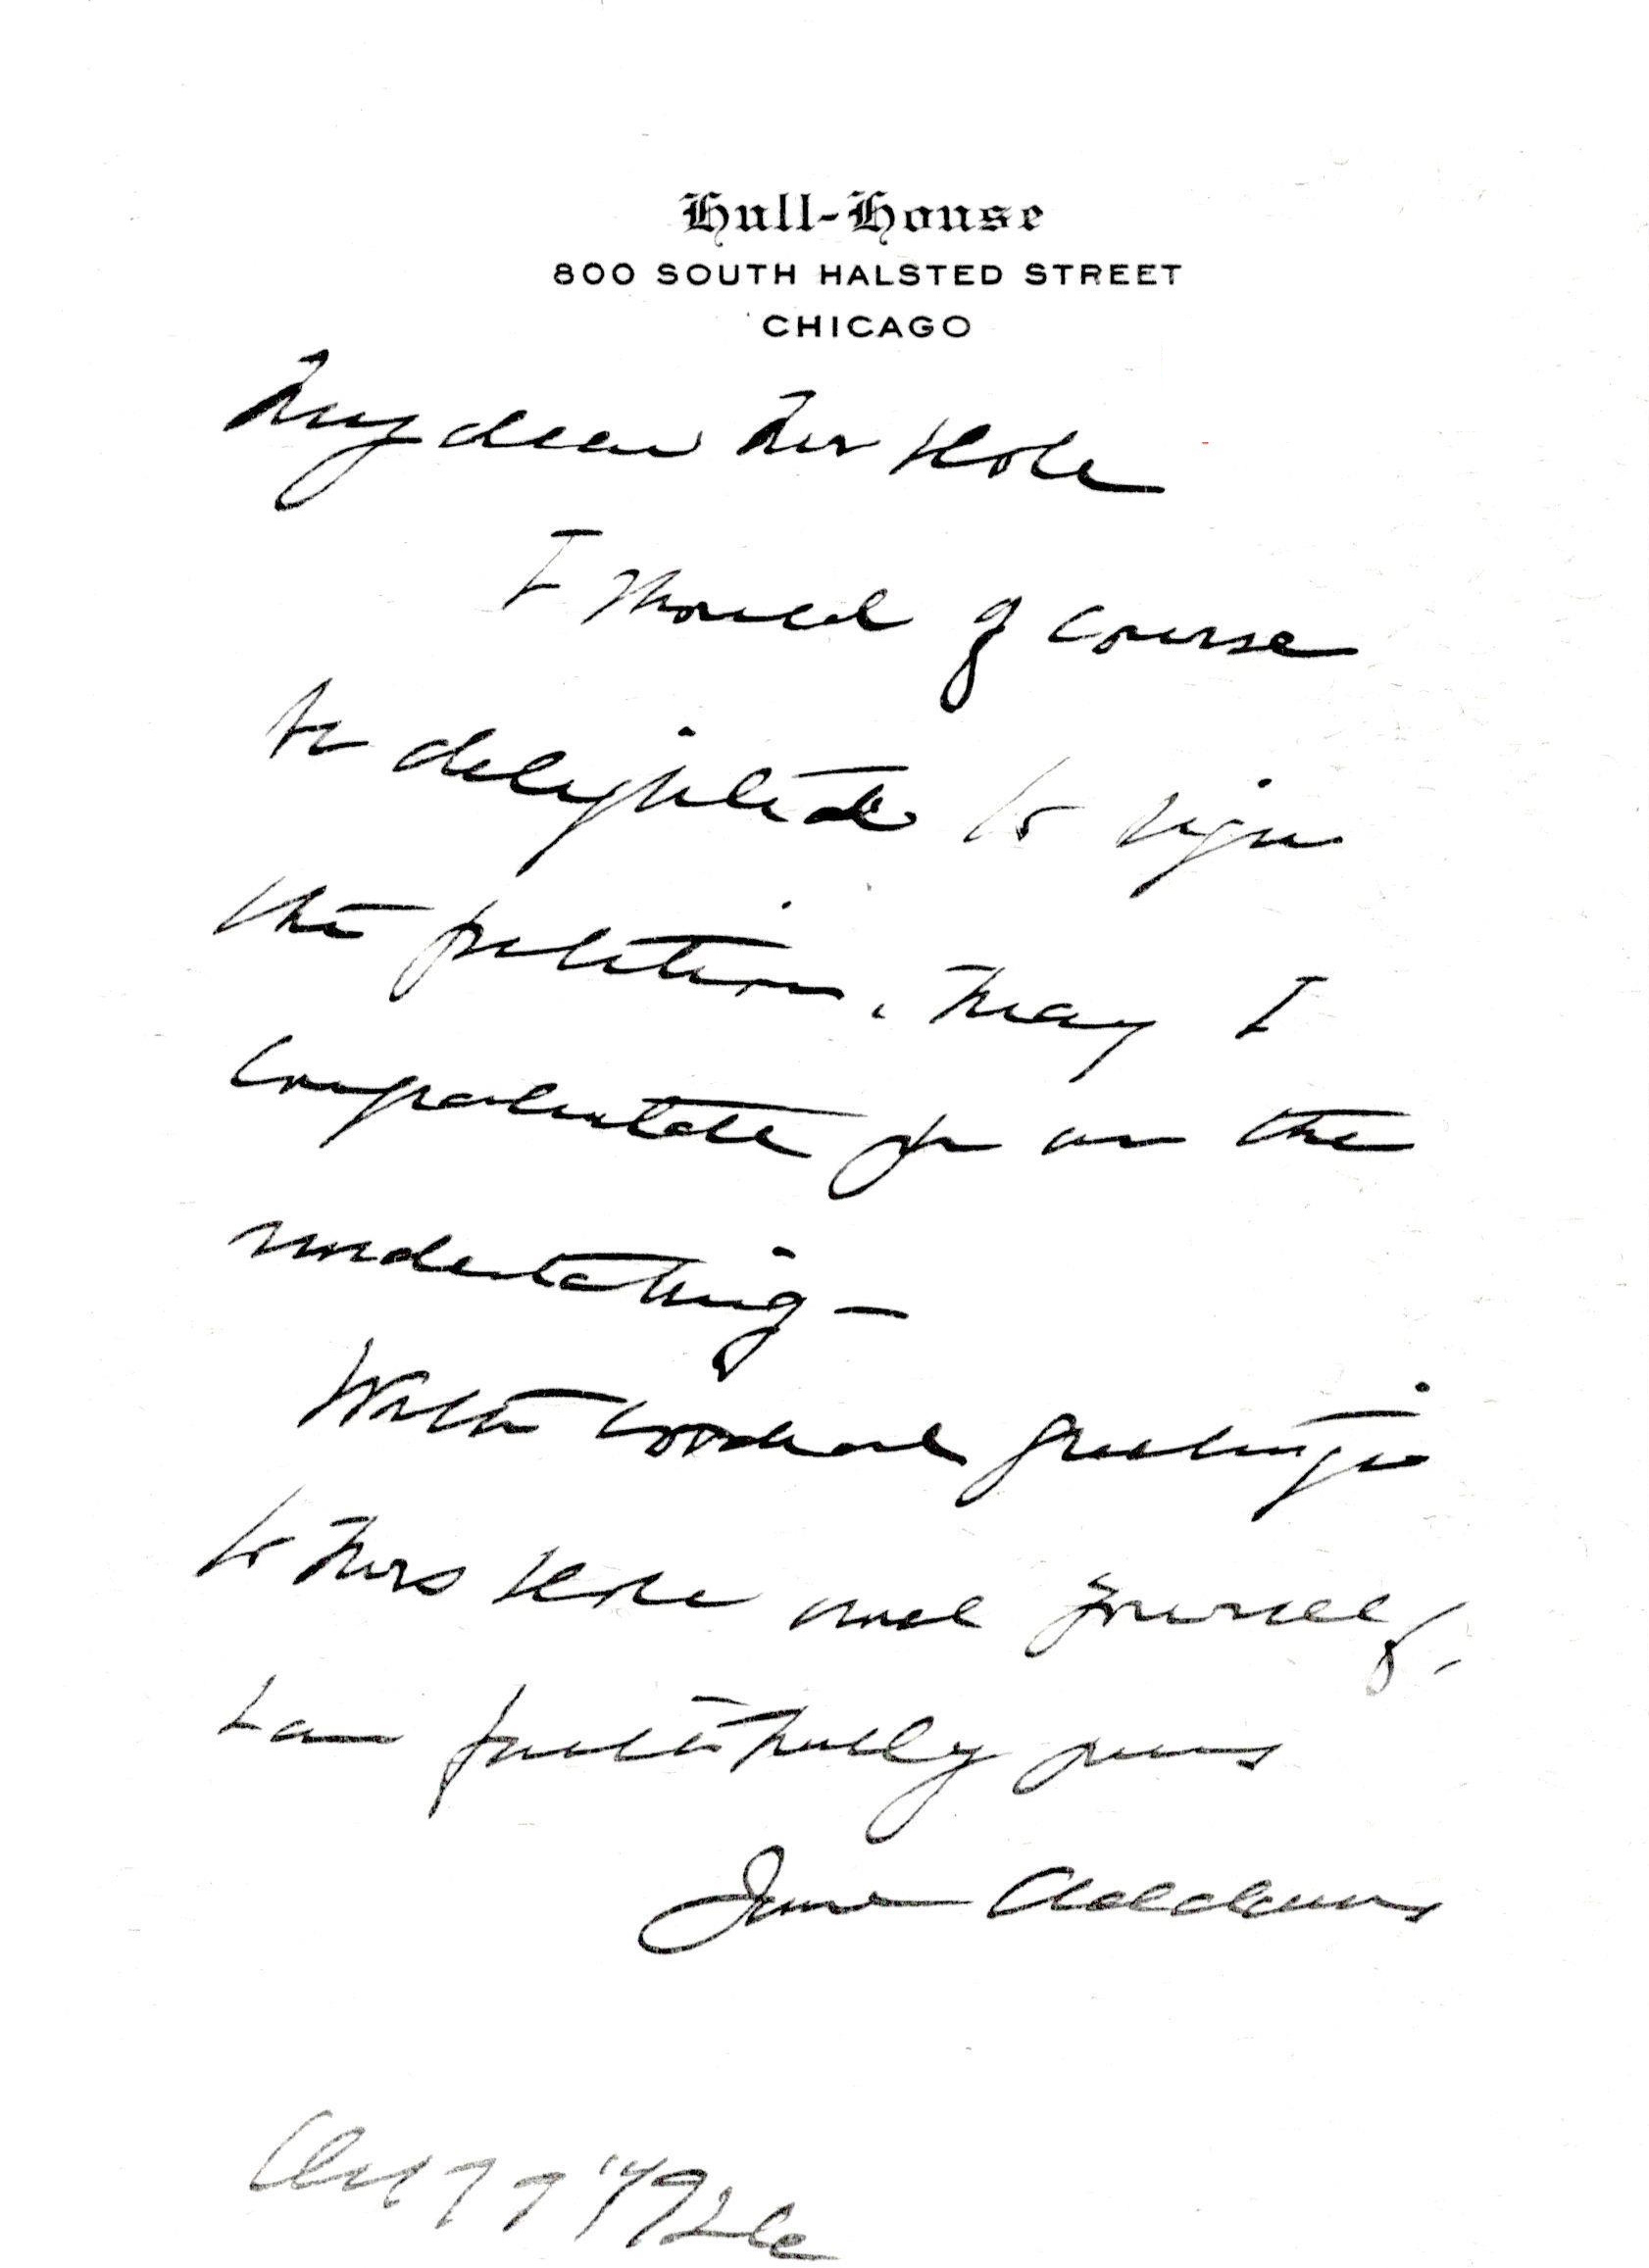 Hull-House
800 SOUTH HALSTED STREET
CHICAGO
My dear Mr Hole
I should of course
be delighted to sign
the petition. May I
congratulate you on the
undertaking –
With cordial greetings
to Mrs Hole and yourself,
I am faithfully yours
Jane Addams
1926